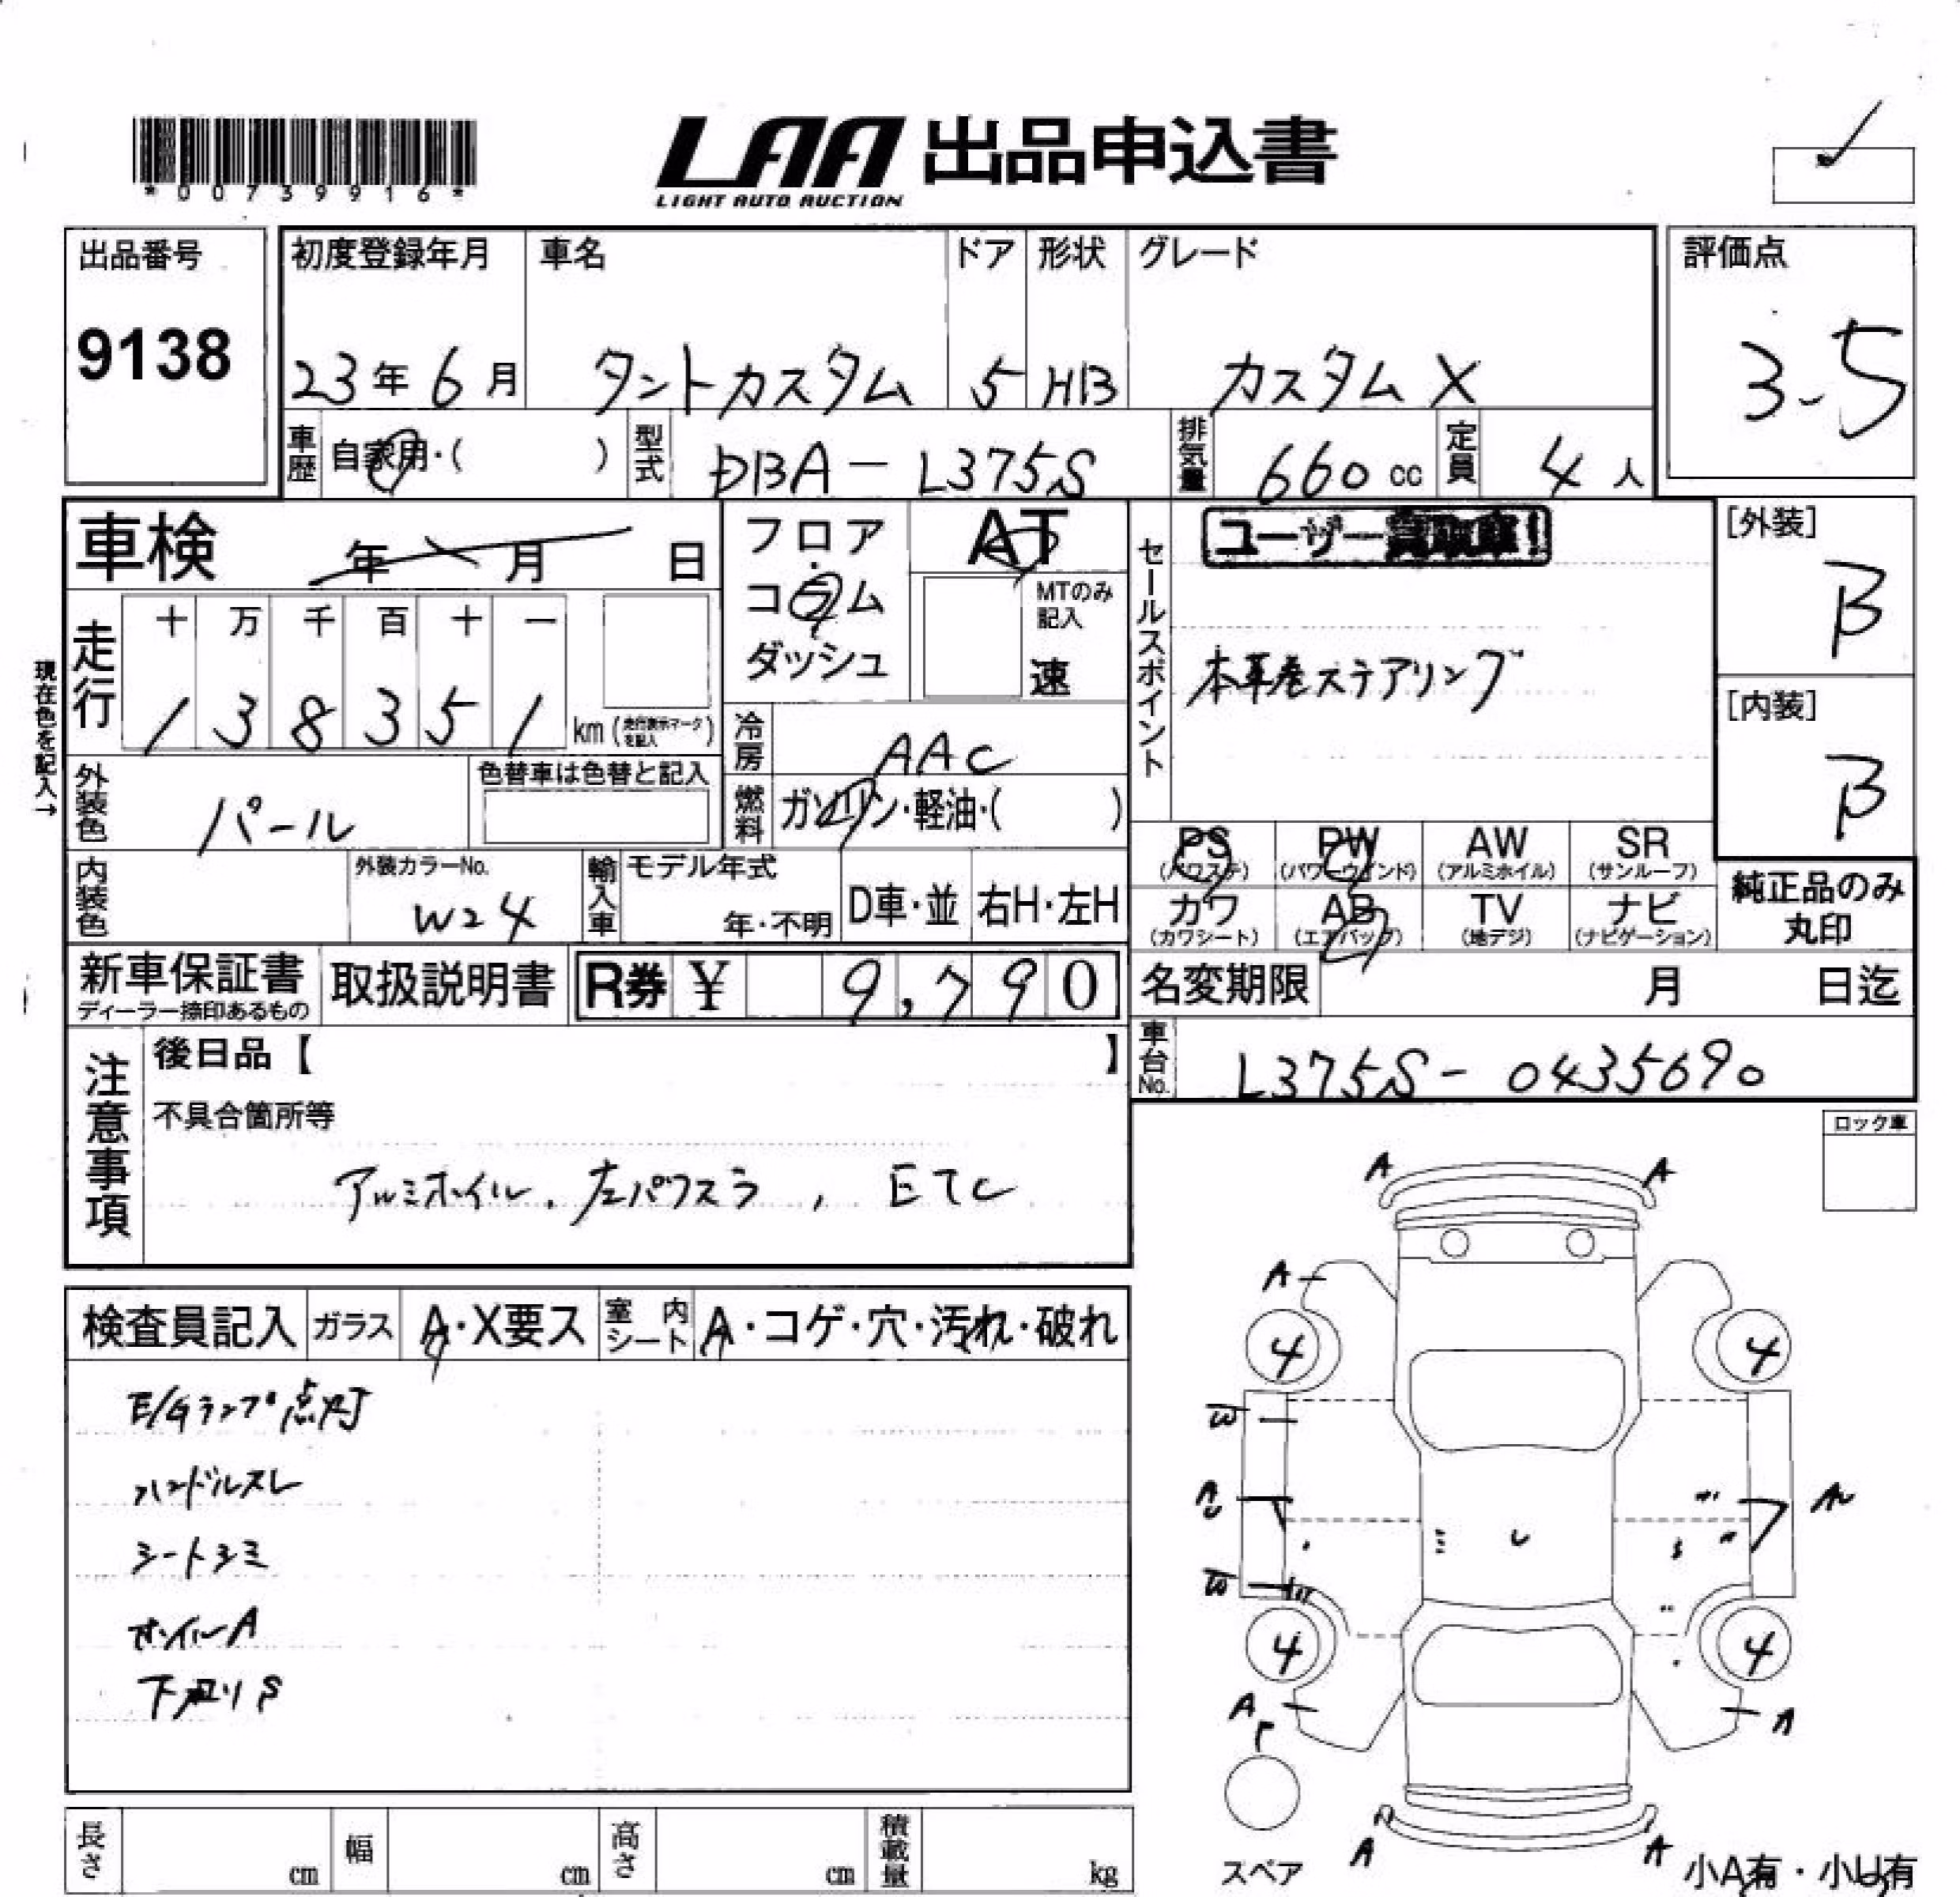 *00739916*
LAA 出品申込書
LIGHT AUTO AUCTION
出品番号
9138
初度登録年月
23年6月
車名
タントカスタム
ドア
5
形状
HB
グレード
カスタムX
評価点
3-5
車歴
自家用・( )
型式
DBA-L375S
排気量
660 cc
定員
4 人
車検 年 月 日
フロア
コラム
ダッシュ
AT
MTのみ
記入
速
セールスポイント
ユーザー買取車!
本革巻ステアリング
[外装]
B
[内装]
B
現在色を記入→
走行
十 万 千 百 十 一
1 3 8 3 5 1 km (走行表示マークを記入)
冷房
AAC
燃料
ガソリン・軽油・( )
外装色
パール
色替車は色替と記入
内装色
外装カラーNo.
W24
輸入車
モデル年式
年・不明
D車・並
右H・左H
PS
(パワステ)
PW
(パワーウインド)
AW
(アルミホイル)
SR
(サンルーフ)
カワ
(カワシート)
AB
(エアバッグ)
TV
(地デジ)
ナビ
(ナビゲーション)
純正品のみ
丸印
新車保証書
ディーラー捺印あるもの
取扱説明書
R券 ¥ 9,790
名変期限 月 日迄
車台No.
L375S-0435690
注意事項
後日品【 】
不具合箇所等
アルミホイル、左パワスラ, ETC
ロック車
検査員記入
ガラス
A・X要ス
室内シート
A・コゲ・穴・汚れ・破れ
E/Gランプ点灯
ハンドルスレ
シートシミ
ホイルA
下廻りS
A A
A
4 4
W
A
W
4 4
A A
A A
スペア
小A有・小U有
長さ cm
幅 cm
高さ cm
積載量 kg